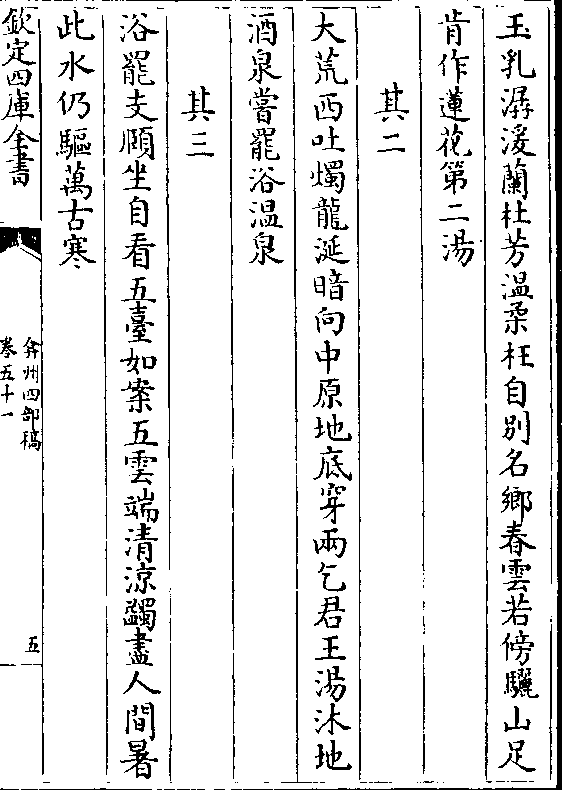 玉乳潺湲蘭杜芳温柔枉自別名鄉春雲若傍驪山足
肯作蓮花第二湯
其二
大荒西吐燭龍涎暗向中原地底穿兩乞君王湯沐地
酒泉嘗罷浴温泉
其三
浴罷支頤坐自看五臺如案五雲端清涼蠲盡人間暑
此水仍驅萬古寒
欽定四庫全書
弇州四部稿
卷五十一
五